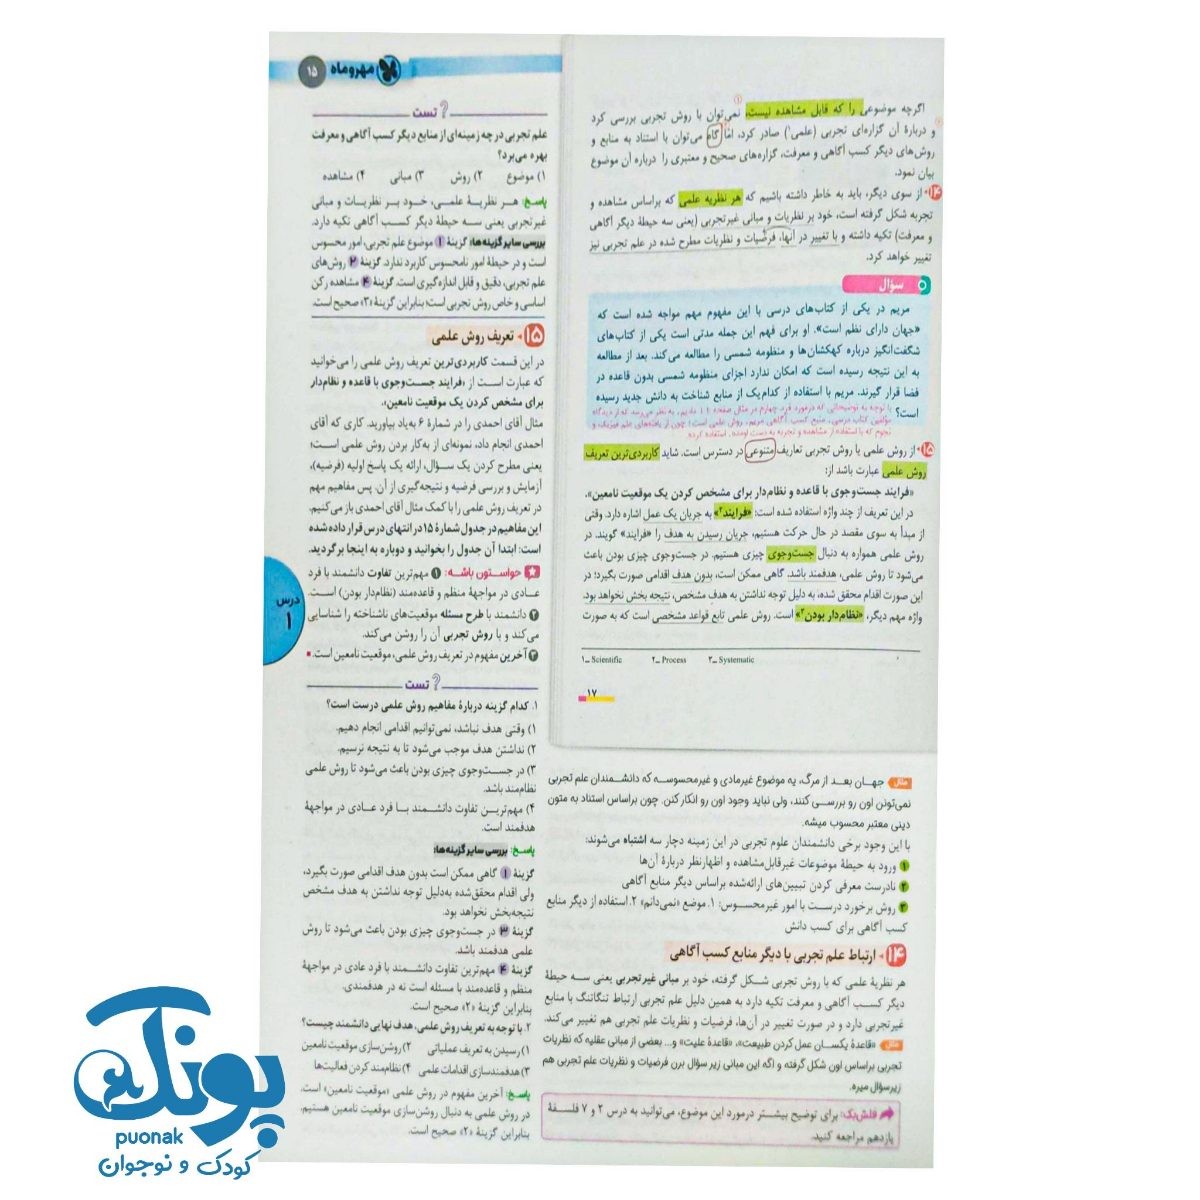 مهروماه
۱۵
اگرچه موضوعی را که قابل مشاهده نیست، نمی‌توان با روش تجربی بررسی کرد
و دربارهٔ آن گزاره‌ای تجربی (علمی۱) صادر کرد، اما گاه می‌توان با استناد به منابع و
روش‌های دیگر کسب آگاهی و معرفت، گزاره‌های صحیح و معتبری را دربارهٔ آن موضوع
بیان نمود.
۱۴ از سوی دیگر، باید به خاطر داشته باشیم که هر نظریه علمی که براساس مشاهده و
تجربه شکل گرفته است، خود بر نظریات و مبانی غیرتجربی (یعنی سه حیطهٔ دیگر آگاهی
و معرفت) تکیه داشته و با تغییر در آنها، فرضیات و نظریات مطرح شده در علم تجربی نیز
تغییر خواهد کرد.
سؤال
مریم در یکی از کتاب‌های درسی با این مفهوم مهم مواجه شده است که
«جهان دارای نظم است». او برای فهم این جمله مدتی است یکی از کتاب‌های
شگفت‌انگیز درباره کهکشان‌ها و منظومه شمسی را مطالعه می‌کند. بعد از مطالعه
به این نتیجه رسیده است که امکان ندارد اجزای منظومه شمسی بدون قاعده در
فضا قرار گیرند. مریم با استفاده از کدام‌یک از منابع شناخت به دانش جدید رسیده
است؟
با توجه به توضیحاتی که درمورد فرد چهارم در مثال صفحه ۱۱ دادیم، به نظر می‌رسه که از دیدگاه
مؤلفین کتاب درسی، منبع کسب آگاهی مریم، روش علمی است؛ چون از یافته‌های علم فیزیک و
نجوم که با استفاده از مشاهده و تجربه به دست اومده، استفاده کرده.
۱۵ از روش علمی یا روش تجربی تعاریف متنوعی در دسترس است. شاید کاربردی‌ترین تعریف
روش علمی عبارت باشد از:
«فرایند جست‌وجوی با قاعده و نظام‌دار برای مشخص کردن یک موقعیت نامعین».
در این تعریف از چند واژه استفاده شده است: «فرایند۲» به جریان یک عمل اشاره دارد. وقتی
از مبدأ به سوی مقصد در حال حرکت هستیم، جریان رسیدن به هدف را «فرایند» گویند. در
روش علمی همواره به دنبال جست‌وجوی چیزی هستیم. در جست‌وجوی چیزی بودن باعث
می‌شود تا روش علمی، هدفمند باشد. گاهی ممکن است، بدون هدف اقدامی صورت بگیرد؛ در
این صورت اقدام محقق شده، به دلیل توجه نداشتن به هدف مشخص، نتیجه بخش نخواهد بود.
واژه مهم دیگر، «نظام‌دار بودن۳» است. روش علمی تابع قواعد مشخصی است که به صورت
۱ـ Scientific ۲ـ Process ۳ـ Systematic
۱۷
مثال جهان بعد از مرگ، یه موضوع غیرمادی و غیرمحسوسه که دانشمندان علم تجربی
نمی‌تونن اون رو بررسی کنند، ولی نباید وجود اون رو انکار کنن. چون براساس استناد به متون
دینی معتبر محسوب میشه.
با این وجود برخی دانشمندان علوم تجربی در این زمینه دچار سه اشتباه می‌شوند:
۱ ورود به حیطهٔ موضوعات غیرقابل‌مشاهده و اظهارنظر دربارهٔ آن‌ها
۲ نادرست معرفی کردن تبیین‌های ارائه‌شده براساس دیگر منابع آگاهی
۳ روش برخورد درست با امور غیرمحسوس: ۱. موضع «نمی‌دانم» ۲. استفاده از دیگر منابع
کسب آگاهی برای کسب دانش
۱۴ ارتباط علم تجربی با دیگر منابع کسب آگاهی
هر نظریهٔ علمی که با روش تجربی شکل گرفته، خود بر مبانی غیرتجربی یعنی سه حیطهٔ
دیگر کسب آگاهی و معرفت تکیه دارد به همین دلیل علم تجربی ارتباط تنگاتنگ با منابع
غیرتجربی دارد و در صورت تغییر در آن‌ها، فرضیات و نظریات علم تجربی هم تغییر می‌کند.
مثال «قاعدهٔ یکسان عمل کردن طبیعت»، «قاعدهٔ علیت» و... بعضی از مبانی عقلیه که نظریات
تجربی براساس اون شکل گرفته و اگه این مبانی زیر سؤال برن فرضیات و نظریات علم تجربی هم
زیرسؤال میره.
فلش‌بک: برای توضیح بیشتر درمورد این موضوع، می‌توانید به درس ۲ و ۷ فلسفهٔ
یازدهم مراجعه کنید.
تست
علم تجربی در چه زمینه‌ای از منابع دیگر کسب آگاهی و معرفت
بهره می‌برد؟
۱) موضوع ۲) روش ۳) مبانی ۴) مشاهده
پاسخ: هر نظریهٔ علمی، خود بر نظریات و مبانی
غیرتجربی یعنی سه حیطهٔ دیگر کسب آگاهی تکیه دارد.
بررسی سایر گزینه‌ها: گزینهٔ ۱ موضوع علم تجربی، امور محسوس
است و در حیطهٔ امور نامحسوس کاربرد ندارد. گزینهٔ ۲ روش‌های
علم تجربی، دقیق و قابل اندازه‌گیری است. گزینهٔ ۴ مشاهده رکن
اساسی و خاص روش تجربی است؛ بنابراین گزینهٔ «۳» صحیح است.
۱۵ تعریف روش علمی
در این قسمت کاربردی‌ترین تعریف روش علمی را می‌خوانید
که عبارت است از «فرایند جست‌وجوی با قاعده و نظام‌دار
برای مشخص کردن یک موقعیت نامعین».
مثال آقای احمدی را در شمارهٔ ۶ به‌یاد بیاورید. کاری که آقای
احمدی انجام داد، نمونه‌ای از به‌کار بردن روش علمی است؛
یعنی مطرح کردن یک سؤال، ارائه یک پاسخ اولیه (فرضیه)،
آزمایش و بررسی فرضیه و نتیجه‌گیری از آن. پس مفاهیم مهم
در تعریف روش علمی را با کمک مثال آقای احمدی باز می‌کنیم.
این مفاهیم در جدول شمارهٔ ۱۵ در انتهای درس قرار داده شده
است؛ ابتدا آن جدول را بخوانید و دوباره به اینجا برگردید.
حواستون باشه: ۱ مهم‌ترین تفاوت دانشمند با فرد
عادی در مواجههٔ منظم و قاعده‌مند (نظام‌دار بودن) است.
۲ دانشمند با طرح مسئله موقعیت‌های ناشناخته را شناسایی
می‌کند و با روش تجربی آن را روشن می‌کند.
۳ آخرین مفهوم در تعریف روش علمی، موقعیت نامعین است.
درس
۱
تست
۱. کدام گزینه دربارهٔ مفاهیم روش علمی درست است؟
۱) وقتی هدف نباشد، نمی‌توانیم اقدامی انجام دهیم.
۲) نداشتن هدف موجب می‌شود تا به نتیجه نرسیم.
۳) در جست‌وجوی چیزی بودن باعث می‌شود تا روش علمی
نظام‌مند باشد.
۴) مهم‌ترین تفاوت دانشمند با فرد عادی در مواجههٔ
هدفمند است.
پاسخ: بررسی سایر گزینه‌ها:
گزینهٔ ۱ گاهی ممکن است بدون هدف اقدامی صورت بگیرد،
ولی اقدام محقق‌شده به‌دلیل توجه نداشتن به هدف مشخص
نتیجه‌بخش نخواهد بود.
گزینهٔ ۳ در جست‌وجوی چیزی بودن باعث می‌شود تا روش
علمی هدفمند باشد.
گزینهٔ ۴ مهم‌ترین تفاوت دانشمند با فرد عادی در مواجههٔ
منظم و قاعده‌مند با مسئله است نه در هدفمندی.
بنابراین گزینهٔ «۲» صحیح است.
۲. با توجه به تعریف روش علمی، هدف نهایی دانشمند چیست؟
۱) رسیدن به تعریف عملیاتی ۲) روشن‌سازی موقعیت نامعین
۳) هدفمندسازی اقدامات علمی ۴) نظام‌مند کردن فعالیت‌ها
پاسخ: آخرین مفهوم در روش علمی «موقعیت نامعین» است.
در روش علمی به دنبال روشن‌سازی موقعیت نامعین هستیم.
بنابراین گزینهٔ «۲» صحیح است.
پونک
puonak
کودک و نوجوان